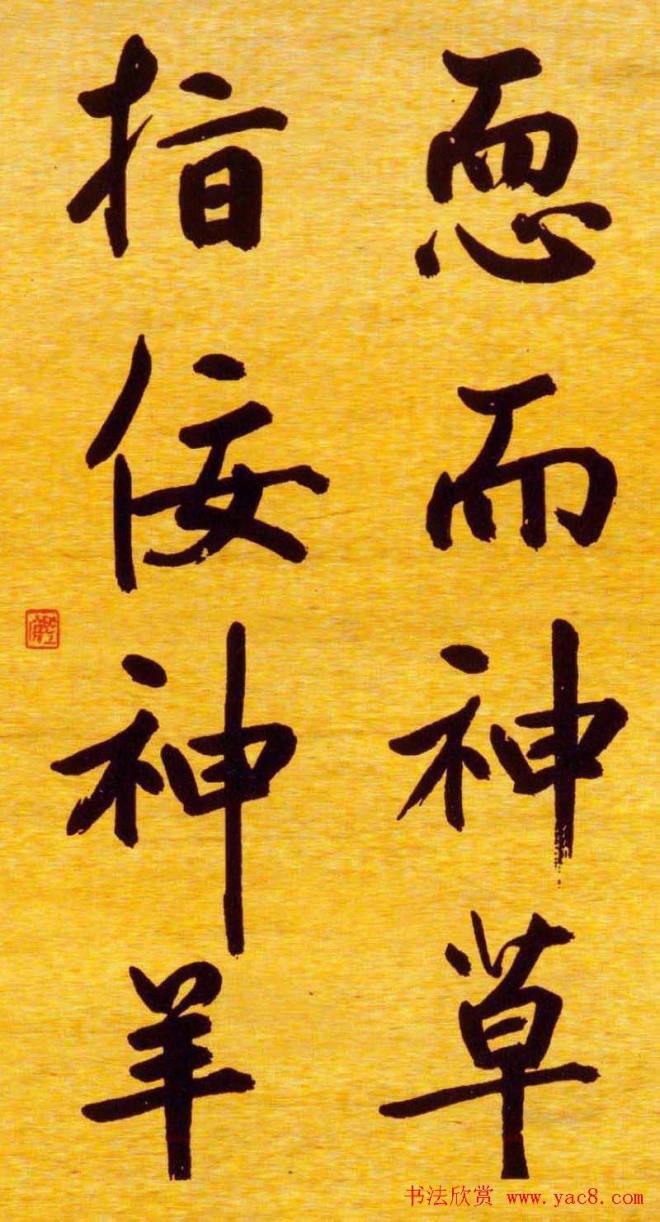 恧而神草
指佞神羊
书法欣赏 www.yac8.com